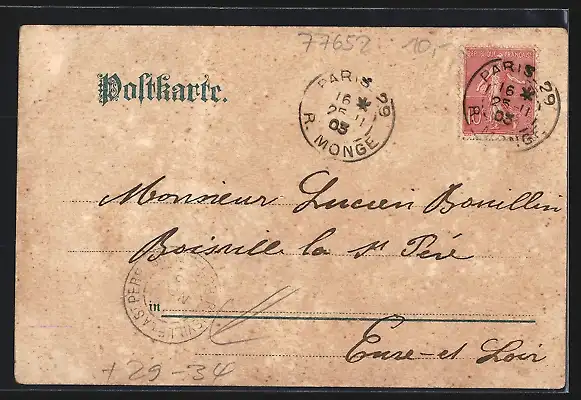 77652 10,-
Postkarte.
PARIS 29
16 *
25 - 11
03
R. MONGE
REPUBLIQUE FRANÇAISE
10
PARIS 29
16 *
25
03
Monsieur Lucien Bouillin
Boisville la St Père
in
Eure-et Loir
+ 29 -34